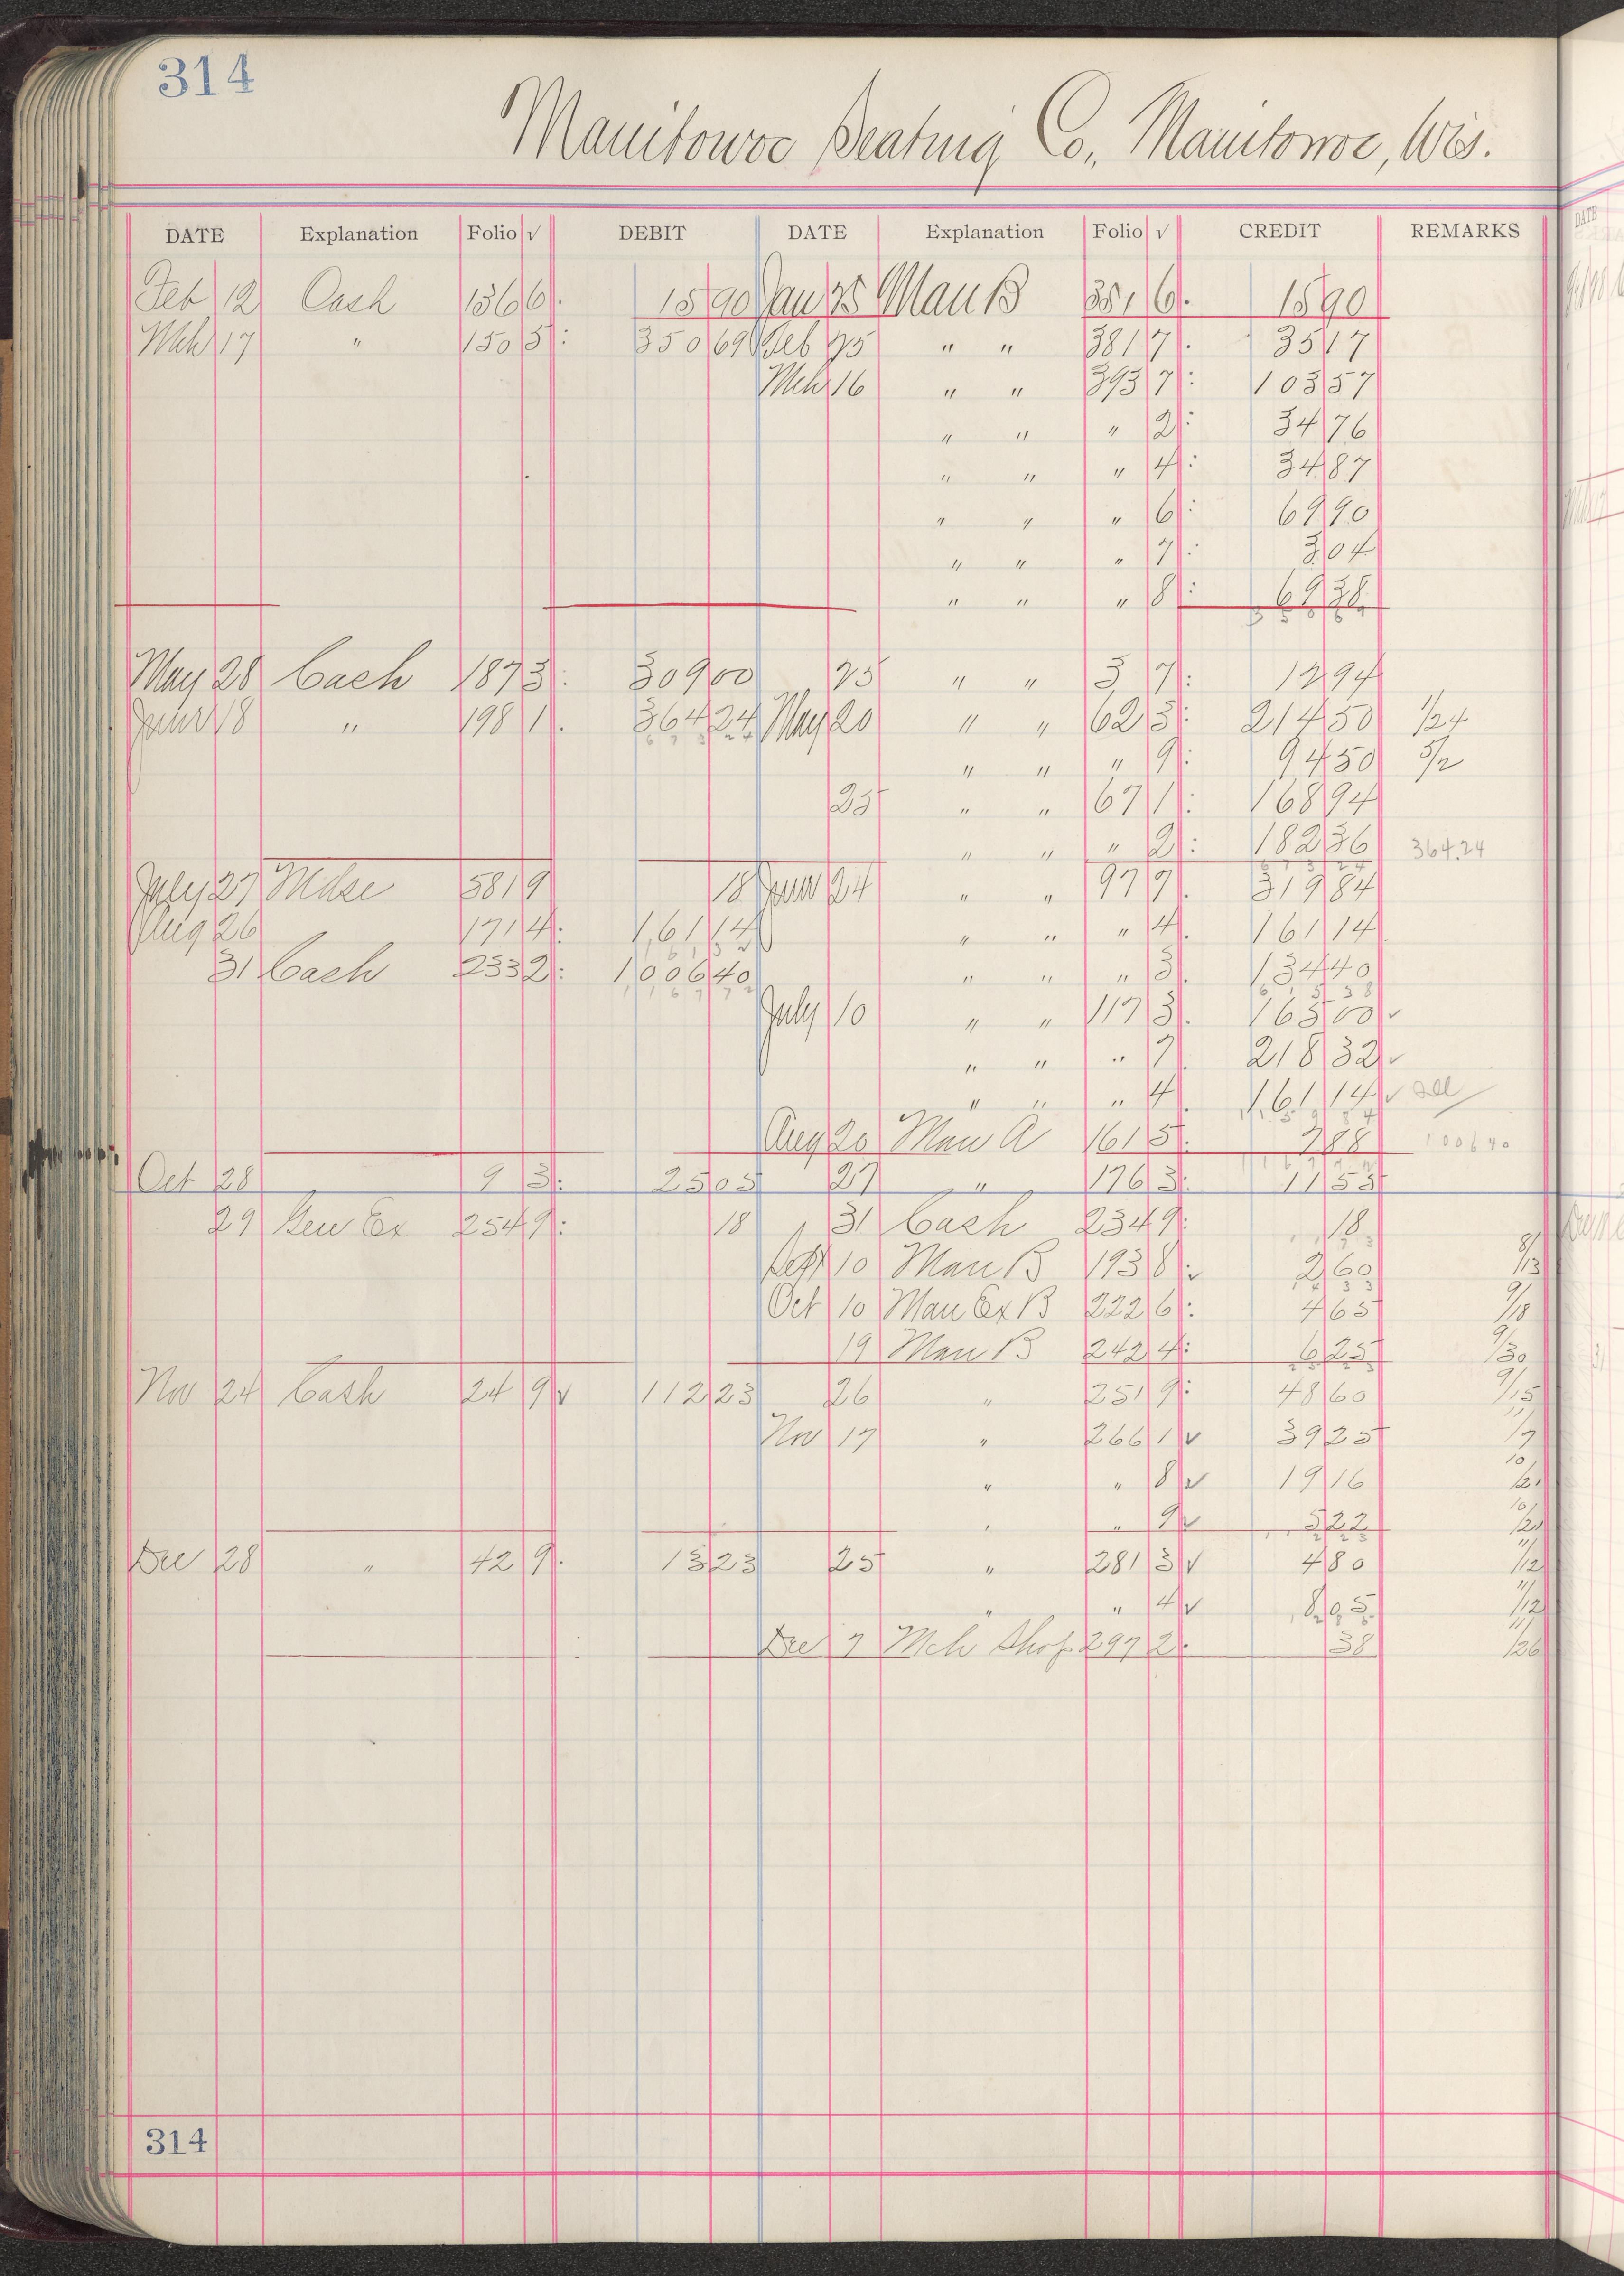 314
Manitowoc Seating Co., Manitowoc, Wis.
DATE Explanation Folio √ DEBIT DATE Explanation Folio √ CREDIT REMARKS
Feb 12 Cash 136 6 15 90 Jan 25 Man B 351 6 15 90
Mch 17 " 150 5 350 69 Feb 25 " " 381 7 35 17
Mch 16 " " 393 7 103 57
" " " 2 34 76
" " " 4 34 87
" " " 6 69 90
" " " 7 3 04
" " " 8 69 38
May 28 Cash 187 3 309 00 25 " " 3 7 12 94
June 18 " 198 1 364 24 May 20 " " 62 3 214 50 1/24
" " " 9 94 50 5/2
25 " " 67 1 168 94
" " " 2 182 36 364.24
July 27 Mdse 581 9 18 June 24 " " 97 7 319 84
Aug 26 171 4 161 14 " " " 4 161 14
31 Cash 233 2 1006 40 " " " 3 134 40
July 10 " " 117 3 165 00 √
" " " 7 218 32 √
" " " 4 161 14 √
Aug 20 Man A 161 5 7 88 1006 40
Oct 28 9 3 25 05 27 " 176 3 11 55
29 Gen Ex 254 9 18 31 Cash 234 9 18
Sept 10 Man B 193 8 2 60 8/13
Oct 10 Man Ex B 222 6 4 65 9/18
19 Man B 242 4 6 25 9/30
Nov 24 Cash 24 9 √ 112 23 26 " 251 9 48 60 9/15
Nov 17 " 266 1 √ 39 25 11/7
" " 8 √ 19 16 10/21
" " 9 √ 5 22 10/21
Dec 28 " 42 9 13 23 25 " 281 3 √ 4 80 11/12
" " 4 √ 8 05 11/12
Dec 7 Mch Shop 297 2 38 11/26
314